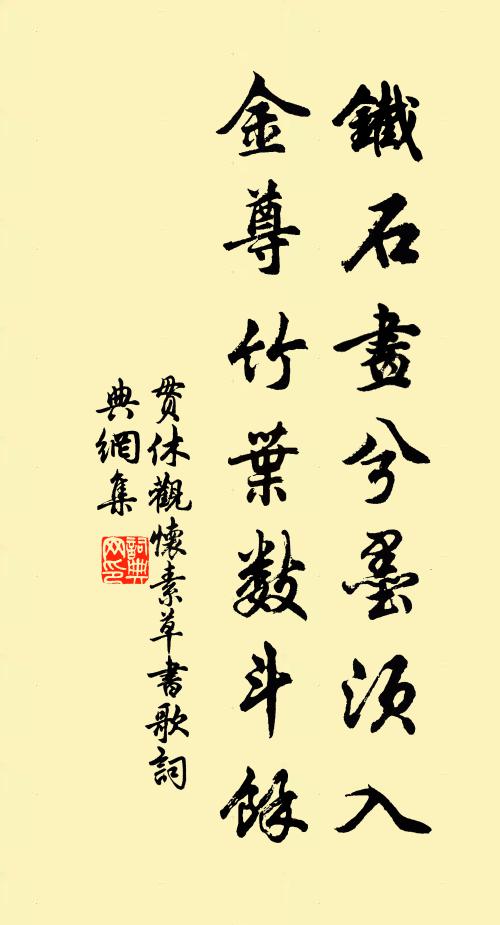 鐵石畫兮墨須入
金尊竹葉數斗餘
貫休觀懷素草書歌詞
典網集
詞典
网印